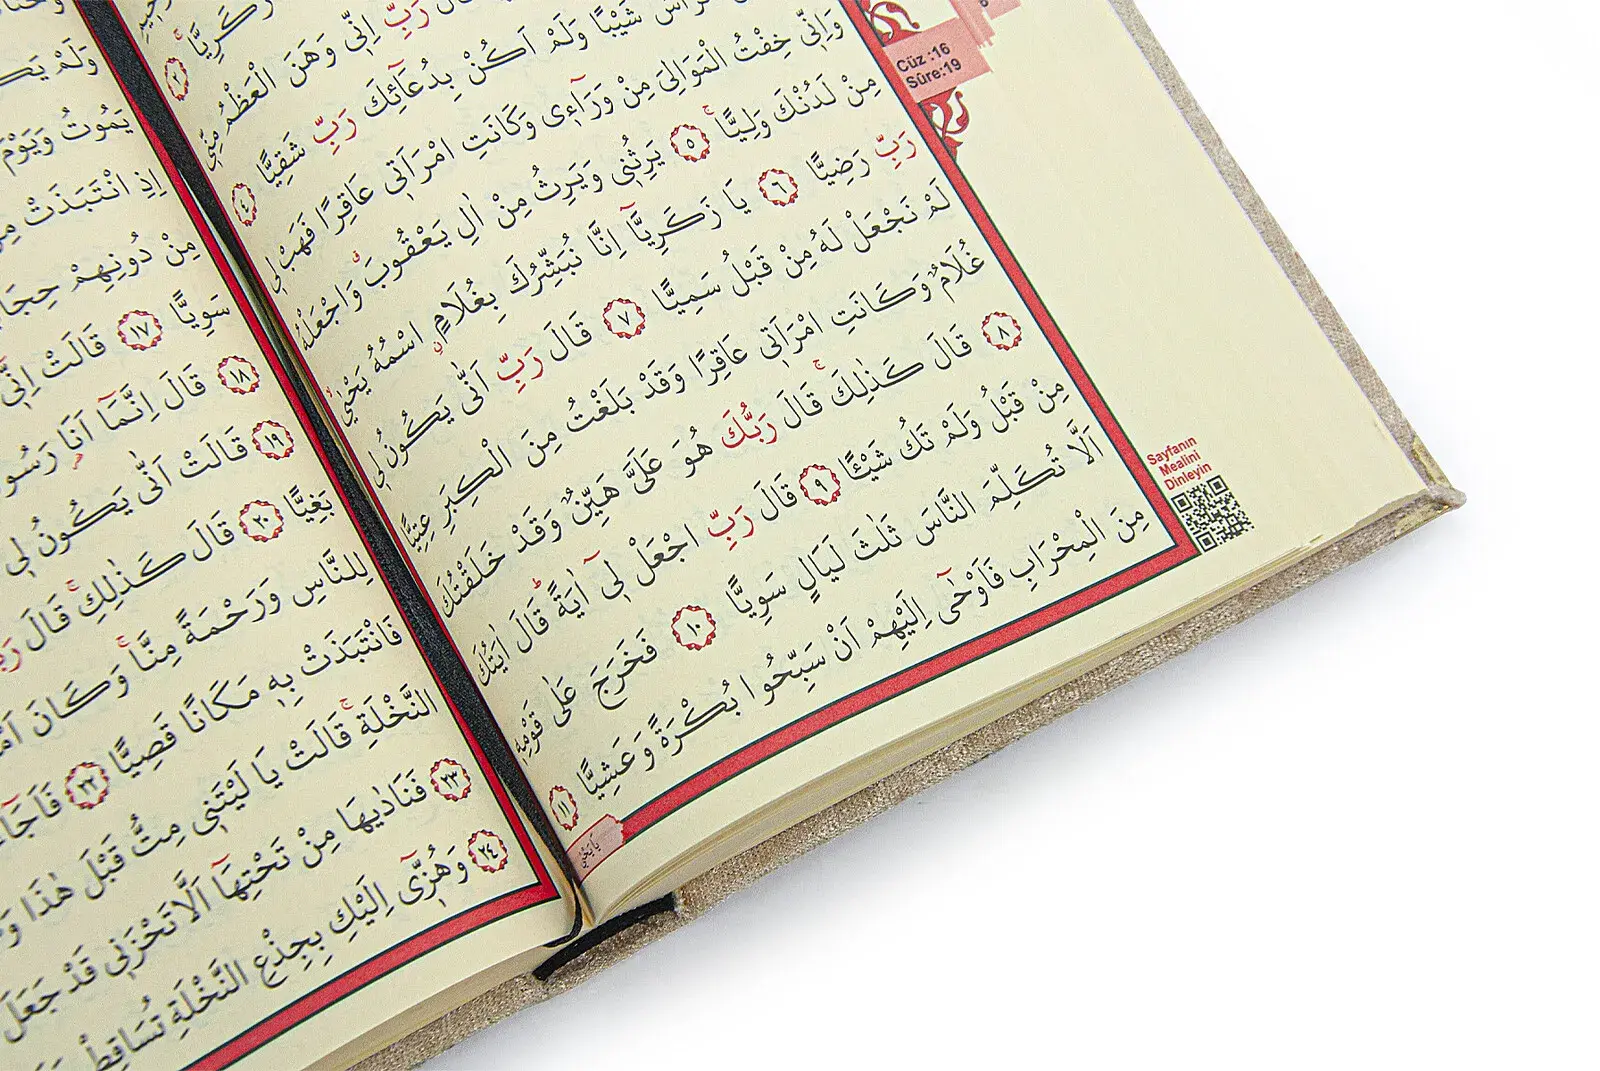 زَكَرِيَّاۚ ٢
قَالَ رَبِّ اِنّٖى وَهَنَ الْعَظْمُ مِنّٖى
شَيْبًا وَلَمْ اَكُنْ بِدُعَٓائِكَ رَبِّ شَقِيًّا ٤
وَاِنّٖى خِفْتُ الْمَوَالِىَ مِنْ وَرَٓاءٖى وَكَانَتِ امْرَاَتٖى عَاقِرًا فَهَبْ لٖى
مِنْ لَدُنْكَ وَلِيًّاۚ ٥ يَرِثُنٖى وَيَرِثُ مِنْ اٰلِ يَعْقُوبَۗ وَاجْعَلْهُ
رَبِّ رَضِيًّا ٦ يَا زَكَرِيَّٓا اِنَّا نُبَشِّرُكَ بِغُلَامٍ اسْمُهُ يَحْيٰى
لَمْ نَجْعَلْ لَهُ مِنْ قَبْلُ سَمِيًّا ٧ قَالَ رَبِّ اَنّٰى يَكُونُ لٖى
غُلَامٌ وَكَانَتِ امْرَاَتٖى عَاقِرًا وَقَدْ بَلَغْتُ مِنَ الْكِبَرِ عِتِيًّا
٨ قَالَ كَذٰلِكَۚ قَالَ رَبُّكَ هُوَ عَلَىَّ هَيِّنٌ وَقَدْ خَلَقْتُكَ
مِنْ قَبْلُ وَلَمْ تَكُ شَيْئًا ٩ قَالَ رَبِّ اجْعَلْ لٖٓى اٰيَةًۜ قَالَ اٰيَتُكَ
اَلَّا تُكَلِّمَ النَّاسَ ثَلٰثَ لَيَالٍ سَوِيًّا ١٠ فَخَرَجَ عَلٰى قَوْمِهٖ
مِنَ الْمِحْرَابِ فَاَوْحٰٓى اِلَيْهِمْ اَنْ سَبِّحُوا بُكْرَةً وَعَشِيًّا ١١
يَا يَحْيٰى
Cüz :16
Sûre:19
Sayfanın
Mealini
Dinleyin
وَلَمْ
يَمُوتُ وَيَوْمَ
اِذِ انْتَبَذَتْ
مِنْ دُونِهِمْ
سَوِيًّا ١٧ قَالَتْ اِنّٖى
١٨ قَالَ اِنَّمَٓا اَنَا
١٩ قَالَتْ اَنّٰى يَكُونُ لٖى
بَغِيًّا ٢٠ قَالَ كَذٰلِكِۚ قَالَ
لِلنَّاسِ وَرَحْمَةً مِنَّاۚ وَكَانَ
فَانْتَبَذَتْ بِهٖ مَكَانًا قَصِيًّا ٢٢
النَّخْلَةِۚ قَالَتْ يَا لَيْتَنٖى مِتُّ قَبْلَ هٰذَا
٢٣ فَنَادٰيهَا مِنْ تَحْتِهَٓا اَلَّا تَحْزَنٖى قَدْ جَعَلَ
٢٤ وَهُزّٖٓى اِلَيْكِ بِجِذْعِ النَّخْلَةِ تُسَاقِطْ